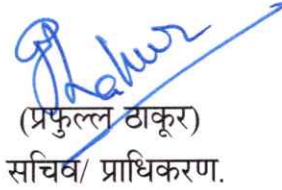 (प्रफुल्ल ठाकूर)
सचिव/ प्राधिकरण.